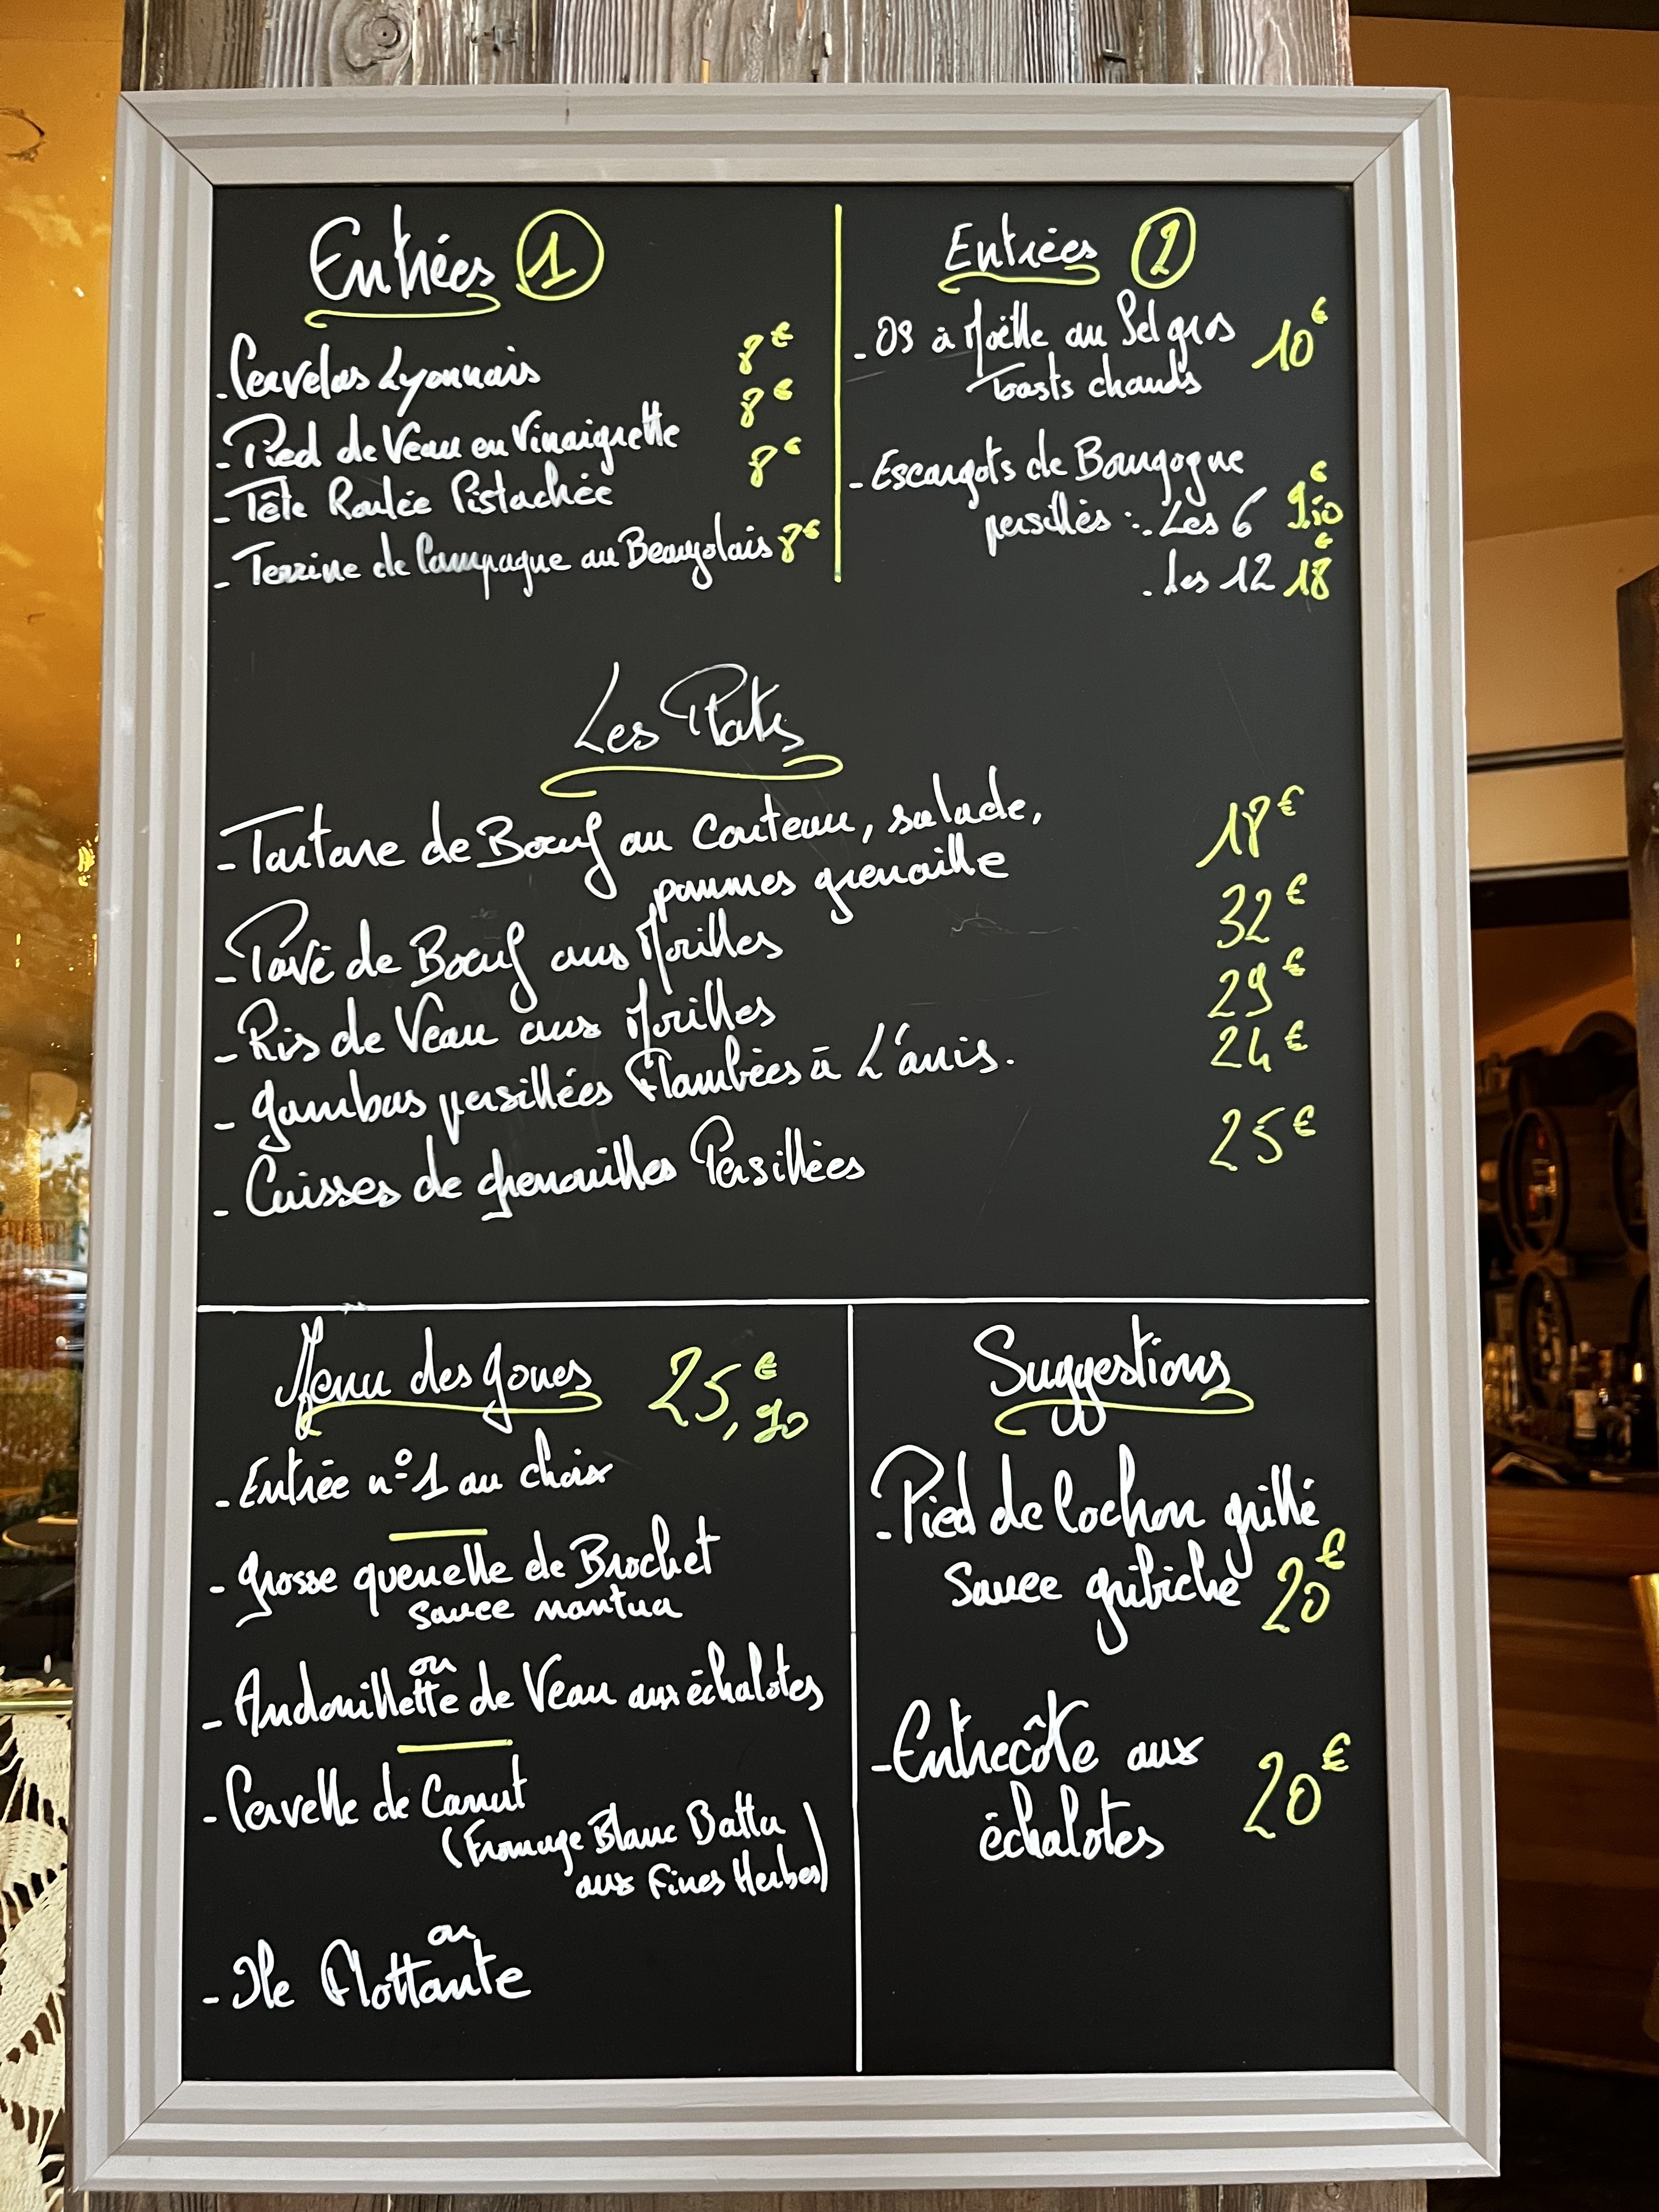 Entrées 1
- Cervelas Lyonnais 8€
- Pied de Veau en Vinaigrette 8€
- Tête Roulée Pistachée 8€
- Terrine de Campagne au Beaujolais 8€
Entrées 2
- OS à Moëlle au Sel gros 10€
Toasts chauds
- Escargots de Bourgogne
persillés : . Les 6 9€,10
. Les 12 18€
Les Plats
- Tartare de Bœuf au Couteau, salade, 18€
pommes grenaille
- Pavé de Bœuf aux Morilles 32€
- Ris de Veau aux Morilles 29€
- Gambas persillées Flambées à L'anis. 24€
- Cuisses de grenouilles Persillées 25€
Menu des gones 25,€90
- Entrée n°1 au choix
- Grosse quenelle de Brochet
sauce nantua
ou
- Andouillette de Veau aux échalotes
- Cervelle de Canut
(Fromage Blanc Battu
aux Fines Herbes)
ou
- Ile Flottante
Suggestions
- Pied de Cochon grillé
Sauce gribiche 20€
- Entrecôte aux
échalotes 20€